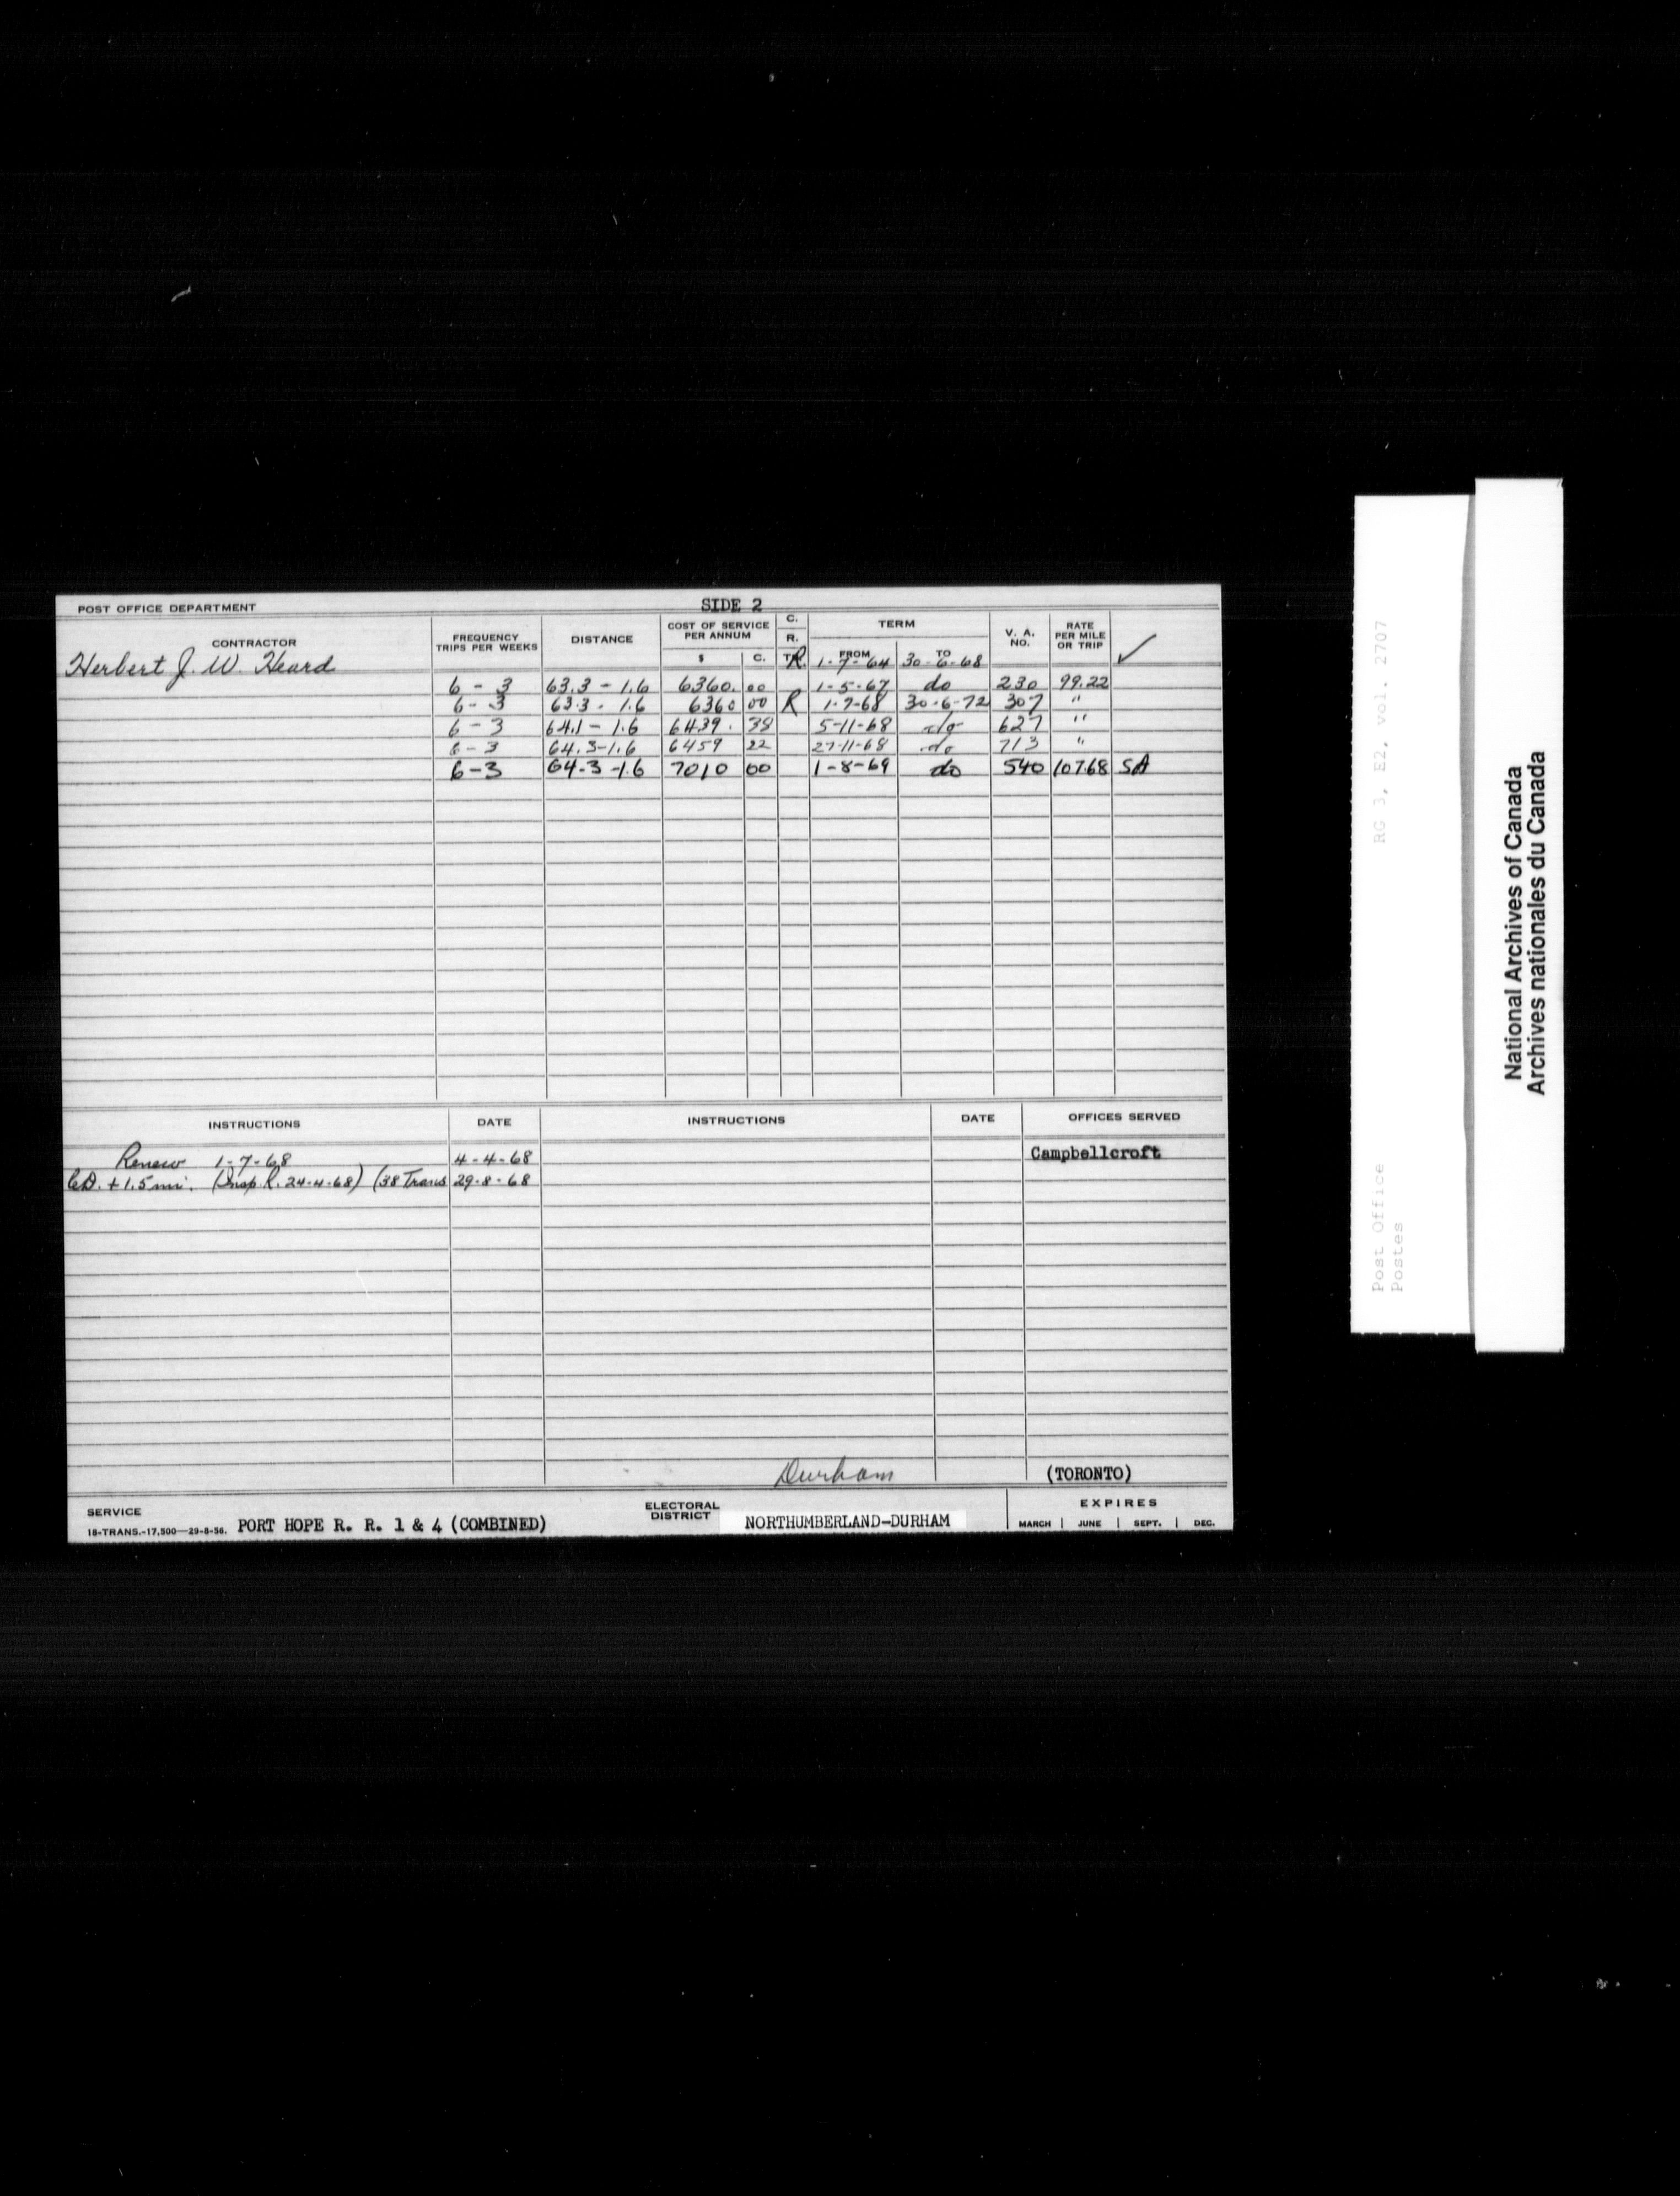 POST OFFICE DEPARTMENT SIDE 2
CONTRACTOR FREQUENCY TRIPS PER WEEKS DISTANCE COST OF SERVICE PER ANNUM $ C. C. R. T. TERM FROM TO V. A. NO. RATE PER MILE OR TRIP ✓
Herbert J. W. Heard R 1-7-64 30-6-68
6 - 3 63.3 - 1.6 6360. 00 1-5-67 do 230 99.22
6 - 3 63.3 - 1.6 6360 00 R 1-7-68 30-6-72 307 "
6 - 3 64.1 - 1.6 6439. 38 5-11-68 do 627 "
6 - 3 64.3-1.6 6459 22 27-11-68 do 713 "
6-3 64.3-1.6 7010 00 1-8-69 do 540 107.68 SA
INSTRUCTIONS DATE INSTRUCTIONS DATE OFFICES SERVED
Renew 1-7-68 4-4-68 Campbellcroft
+ 1.5 mi. (Insp. R. 24-4-68) (38 Trans 29-8-68
Durham (TORONTO)
SERVICE ELECTORAL DISTRICT EXPIRES
18-TRANS.-17,500—29-8-56. PORT HOPE R. R. 1 & 4 (COMBINED) NORTHUMBERLAND-DURHAM MARCH | JUNE | SEPT. | DEC.
RG 3, E2, vol. 2707
Post Office
Postes
National Archives of Canada
Archives nationales du Canada